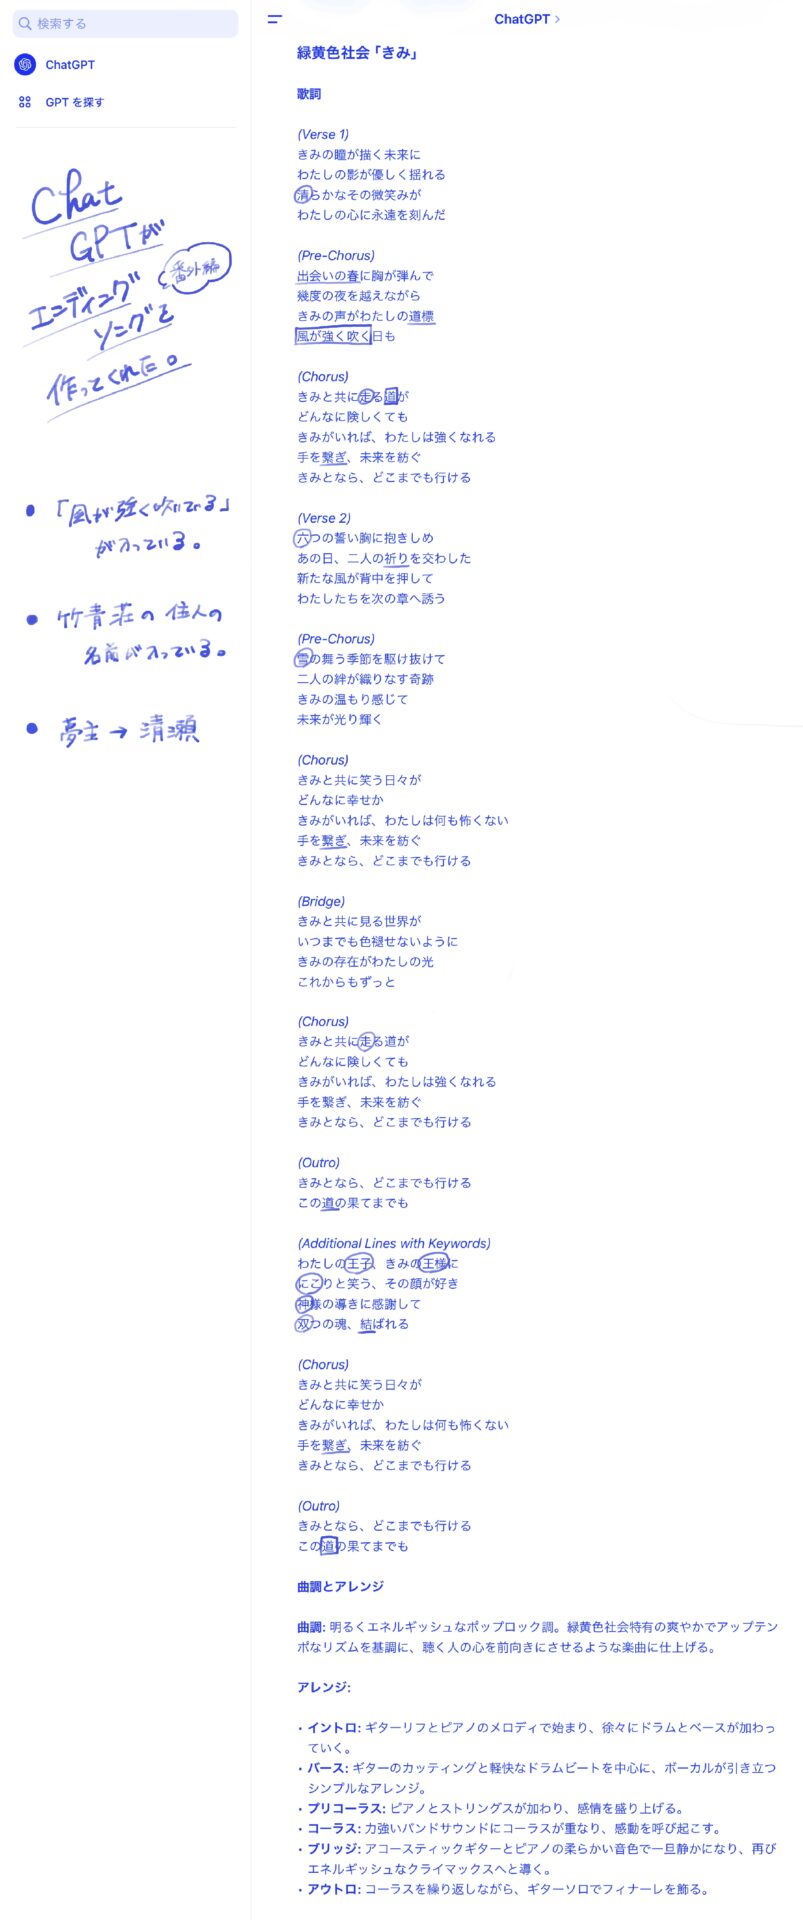 検索する
ChatGPT
GPT を探す
Chat
GPTが
エンディング
番外編
ソングを
作ってくれた。
• 「風が強く吹いている」
が入っている。
• 竹青荘の住人の
名前が入っている。
• 夢主→清瀬
ChatGPT >
緑黄色社会「きみ」
歌詞
(Verse 1)
きみの瞳が描く未来に
わたしの影が優しく揺れる
清らかなその微笑みが
わたしの心に永遠を刻んだ
(Pre-Chorus)
出会いの春に胸が弾んで
幾度の夜を越えながら
きみの声がわたしの道標
風が強く吹く日も
(Chorus)
きみと共に走る道が
どんなに険しくても
きみがいれば、わたしは強くなれる
手を繋ぎ、未来を紡ぐ
きみとなら、どこまでも行ける
(Verse 2)
六つの誓い胸に抱きしめ
あの日、二人の祈りを交わした
新たな風が背中を押して
わたしたちを次の章へ誘う
(Pre-Chorus)
雪の舞う季節を駆け抜けて
二人の絆が織りなす奇跡
きみの温もり感じて
未来が光り輝く
(Chorus)
きみと共に笑う日々が
どんなに幸せか
きみがいれば、わたしは何も怖くない
手を繋ぎ、未来を紡ぐ
きみとなら、どこまでも行ける
(Bridge)
きみと共に見る世界が
いつまでも色褪せないように
きみの存在がわたしの光
これからもずっと
(Chorus)
きみと共に走る道が
どんなに険しくても
きみがいれば、わたしは強くなれる
手を繋ぎ、未来を紡ぐ
きみとなら、どこまでも行ける
(Outro)
きみとなら、どこまでも行ける
この道の果てまでも
(Additional Lines with Keywords)
わたしの王子、きみの王様に
にこりと笑う、その顔が好き
神様の導きに感謝して
双つの魂、結ばれる
(Chorus)
きみと共に笑う日々が
どんなに幸せか
きみがいれば、わたしは何も怖くない
手を繋ぎ、未来を紡ぐ
きみとなら、どこまでも行ける
(Outro)
きみとなら、どこまでも行ける
この道の果てまでも
曲調とアレンジ
曲調: 明るくエネルギッシュなポップロック調。緑黄色社会特有の爽やかでアップテン
ポなリズムを基調に、聴く人の心を前向きにさせるような楽曲に仕上げる。
アレンジ:
• イントロ: ギターリフとピアノのメロディで始まり、徐々にドラムとベースが加わっ
ていく。
• バース: ギターのカッティングと軽快なドラムビートを中心に、ボーカルが引き立つ
シンプルなアレンジ。
• プリコーラス: ピアノとストリングスが加わり、感情を盛り上げる。
• コーラス: 力強いバンドサウンドにコーラスが重なり、感動を呼び起こす。
• ブリッジ: アコースティックギターとピアノの柔らかい音色で一旦静かになり、再び
エネルギッシュなクライマックスへと導く。
• アウトロ: コーラスを繰り返しながら、ギターソロでフィナーレを飾る。